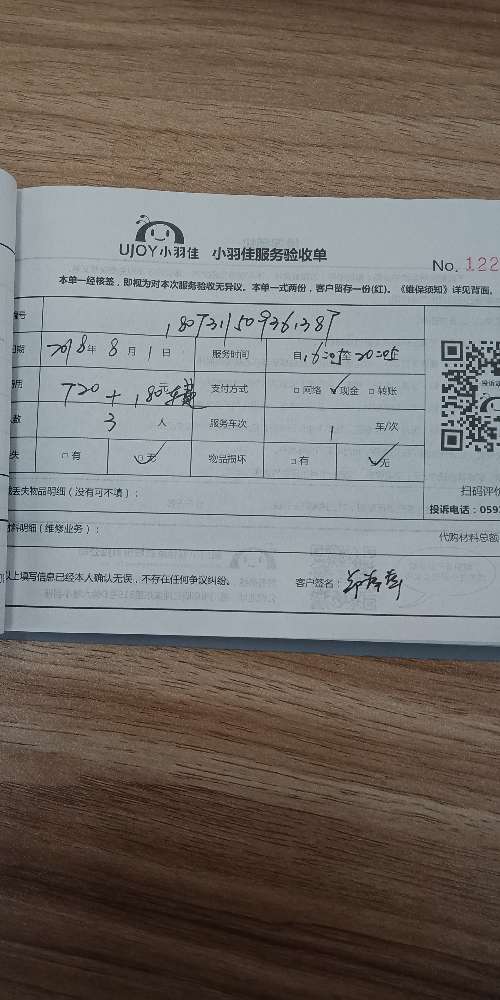 UJOY小羽佳 小羽佳服务验收单
No. 122
本单一经核签，即视为对本次服务验收无异议。本单一式两份，客户留存一份(红)。《维保须知》详见背面。
编号 1807311509361387
日期 2018年 8月 1日 服务时间 自16:05至20:05
费用 720元+180 支付方式 □网络 ☑现金 □转账
人数 3 人 服务车次 1 车/次
失 □有 ☑无 物品损坏 □有 ☑无
丢失物品明细（没有可不填）：
扫码评价
投诉电话：059
料明细（维修业务）：
代购材料总额
以上填写信息已经本人确认无误，不存在任何争议纠纷。 客户签名：